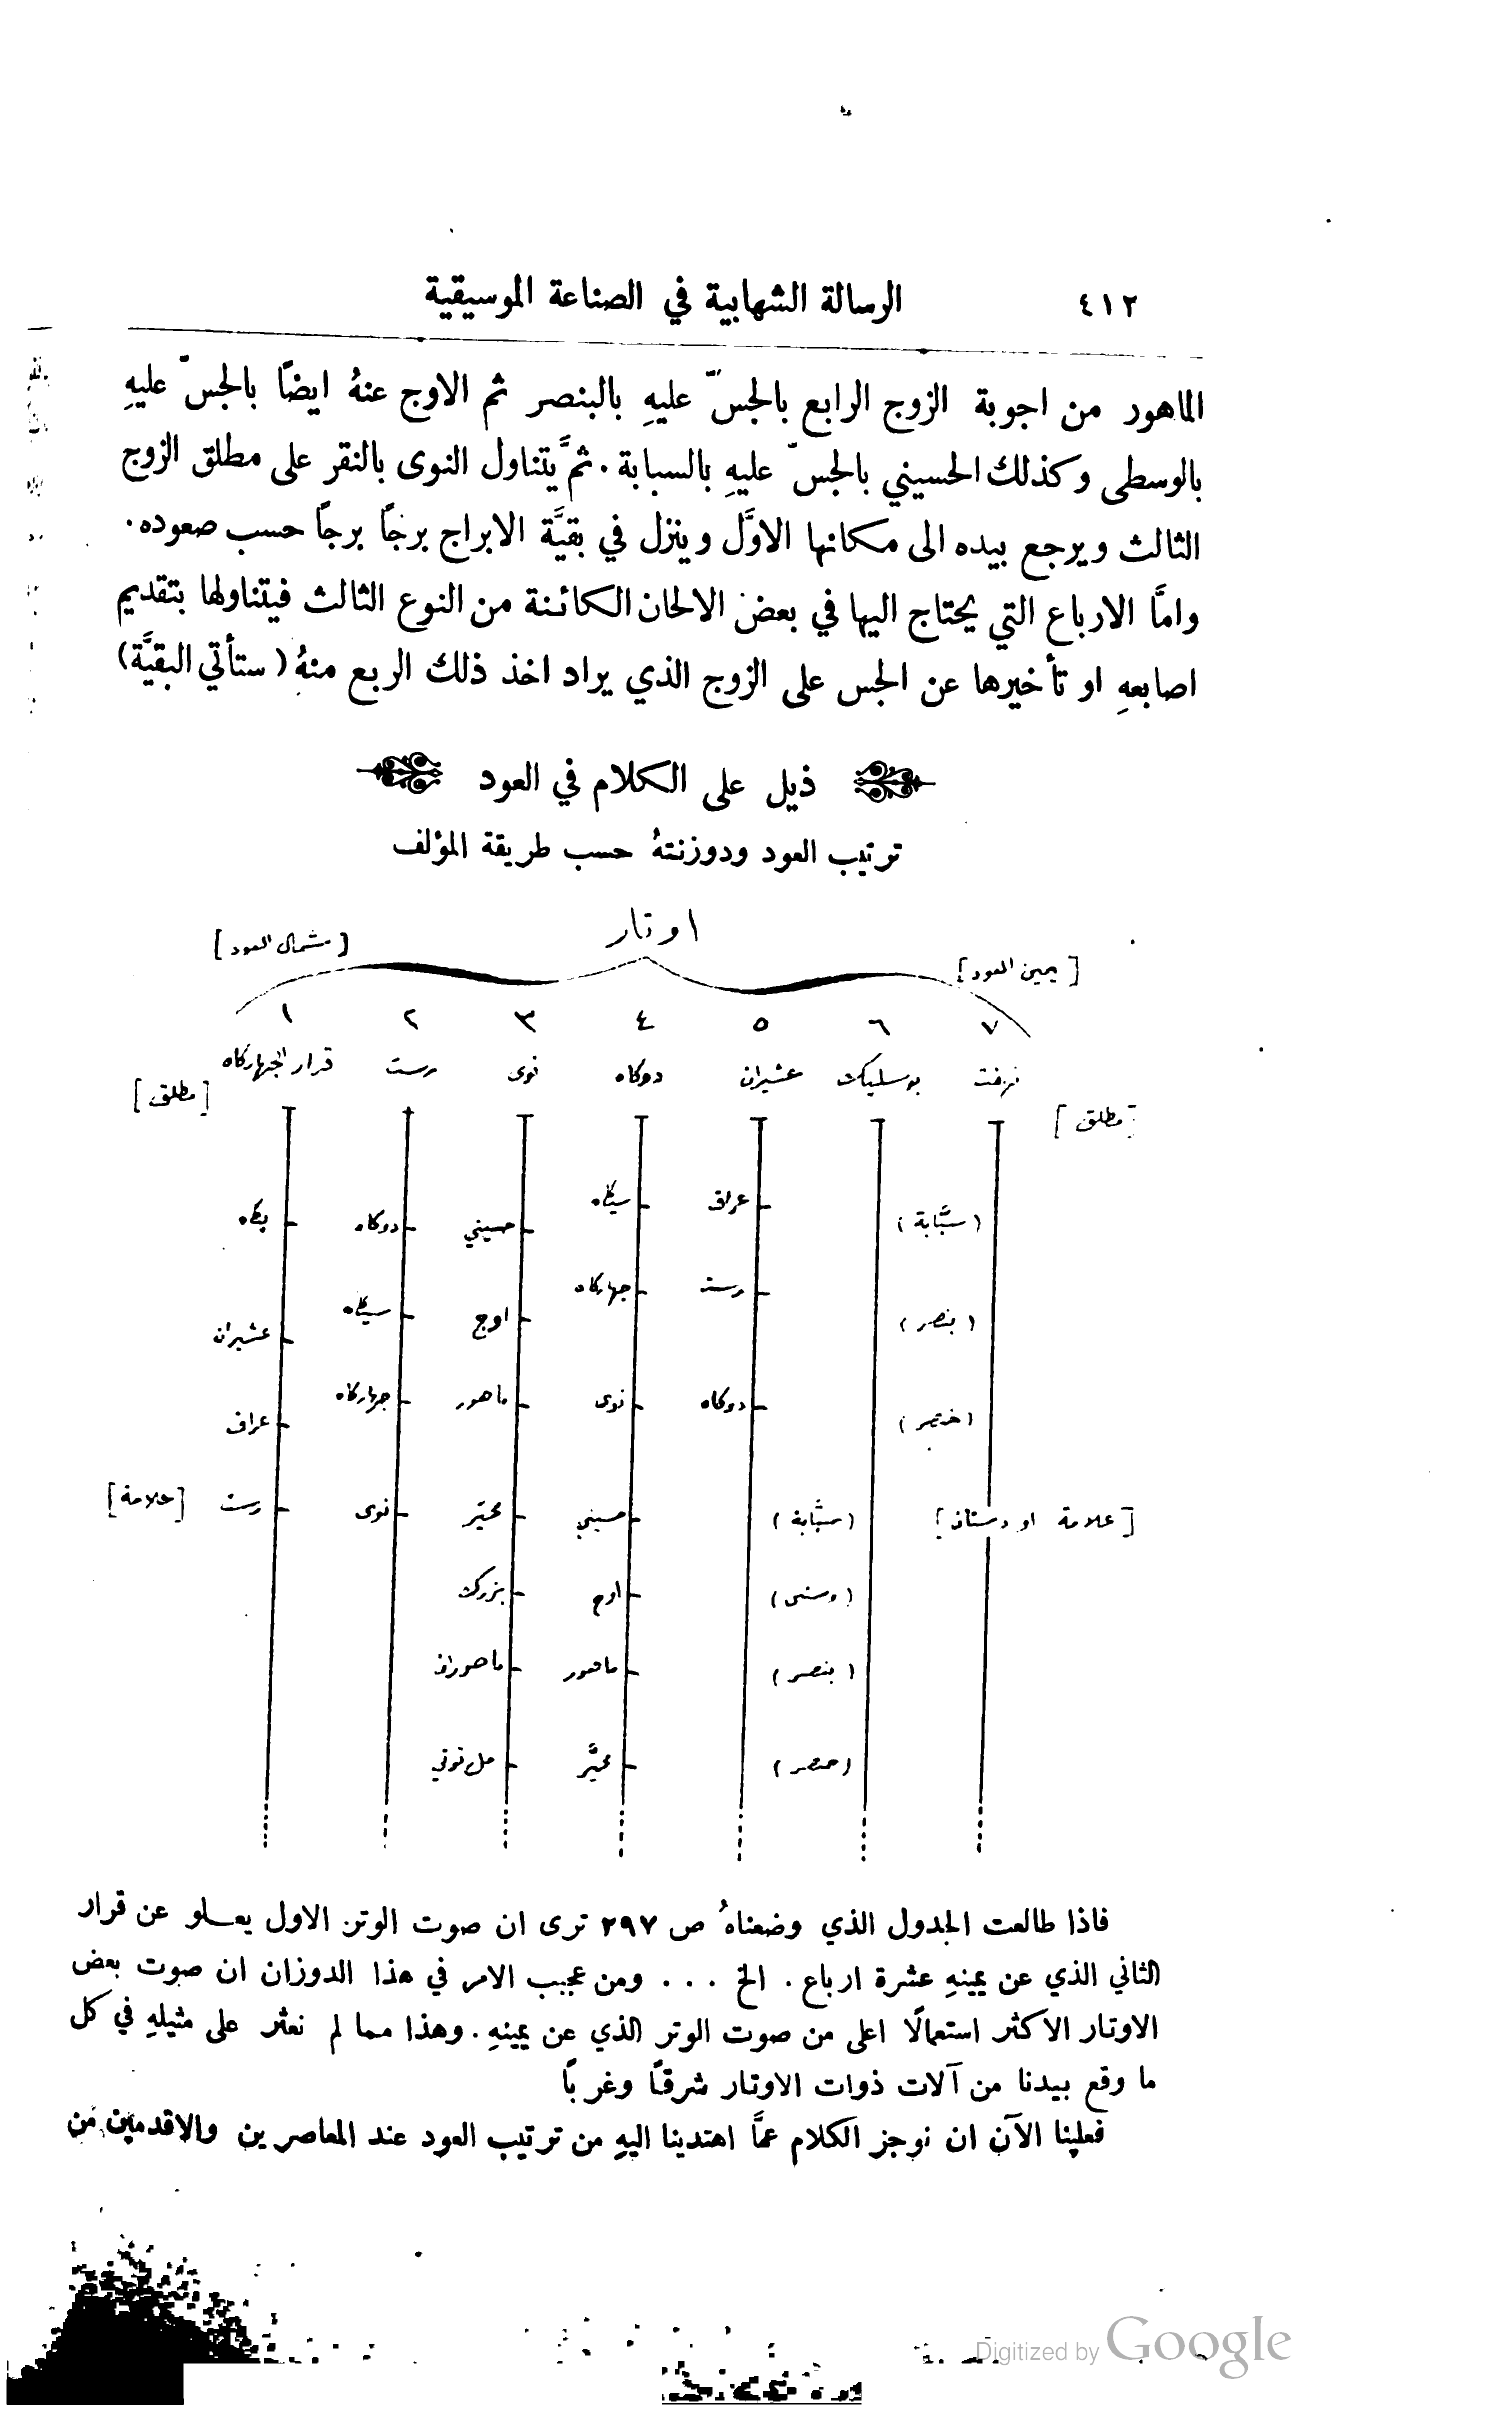 ٤١٢ الرسالة الشهابية في الصناعة الموسيقية
الماهور من اجوبة الزوج الرابع بالجسّ عليهِ بالبنصر ثم الاوج عنهُ ايضًا بالجسّ عليهِ
بالوسطى وكذلك الحسيني بالجسّ عليهِ بالسبابة. ثمَّ يتناول النوى بالنقر على مطلق الزوج
الثالث ويرجع بيده الى مكانها الاوَّل وينزل في بقيَّة الابراج برجًا برجًا حسب صعوده.
وامَّا الارباع التي يحتاج اليها في بعض الالحان الكائنة من النوع الثالث فيتناولها بتقديم
اصابعهِ او تأخيرها عن الجس على الزوج الذي يراد اخذ ذلك الربع منهُ (ستأتي البقيَّة)
ذيل على الكلام في العود
ترتيب العود ودوزنتهُ حسب طريقة المؤلف
اوتار
[يمين العود] [شمال العود]
٧ ٦ ٥ ٤ ٣ ٢ ١
نهفت بوسليك عشيران دوكاه نوى رست قرار الجهاركاه
[مطلق] [مطلق]
(سبَّابة) عراق سيكاه حسيني دوكاه يكاه
(بنصر) رست جهاركاه اوج سيكاه عشيران
(خنصر) دوكاه نوى ماهور جهاركاه عراق
[علامة او دستان] (سبَّابة) حسيني محيّر نوى رست [علامة]
(وسطى) اوج بزرك
(بنصر) ماهور ماهوران
(خنصر) محيَّر رمل توتي
فاذا طالعت الجدول الذي وضعناهُ ص ٢٩٧ ترى ان صوت الوتر الاول يعلو عن قرار
الثاني الذي عن يمينهِ عشرة ارباع. الخ ... ومن عجيب الامر في هذا الدوزان ان صوت بعض
الاوتار الاكثر استعمالًا اعلى من صوت الوتر الذي عن يمينهِ. وهذا مما لم نعثر على مثيلهِ في كل
ما وقع بيدنا من آلات ذوات الاوتار شرقًا وغربًا
فعلينا الآن ان نوجز الكلام عمَّا اهتدينا اليهِ من ترتيب العود عند المعاصرين والاقدمين من
Digitized by Google